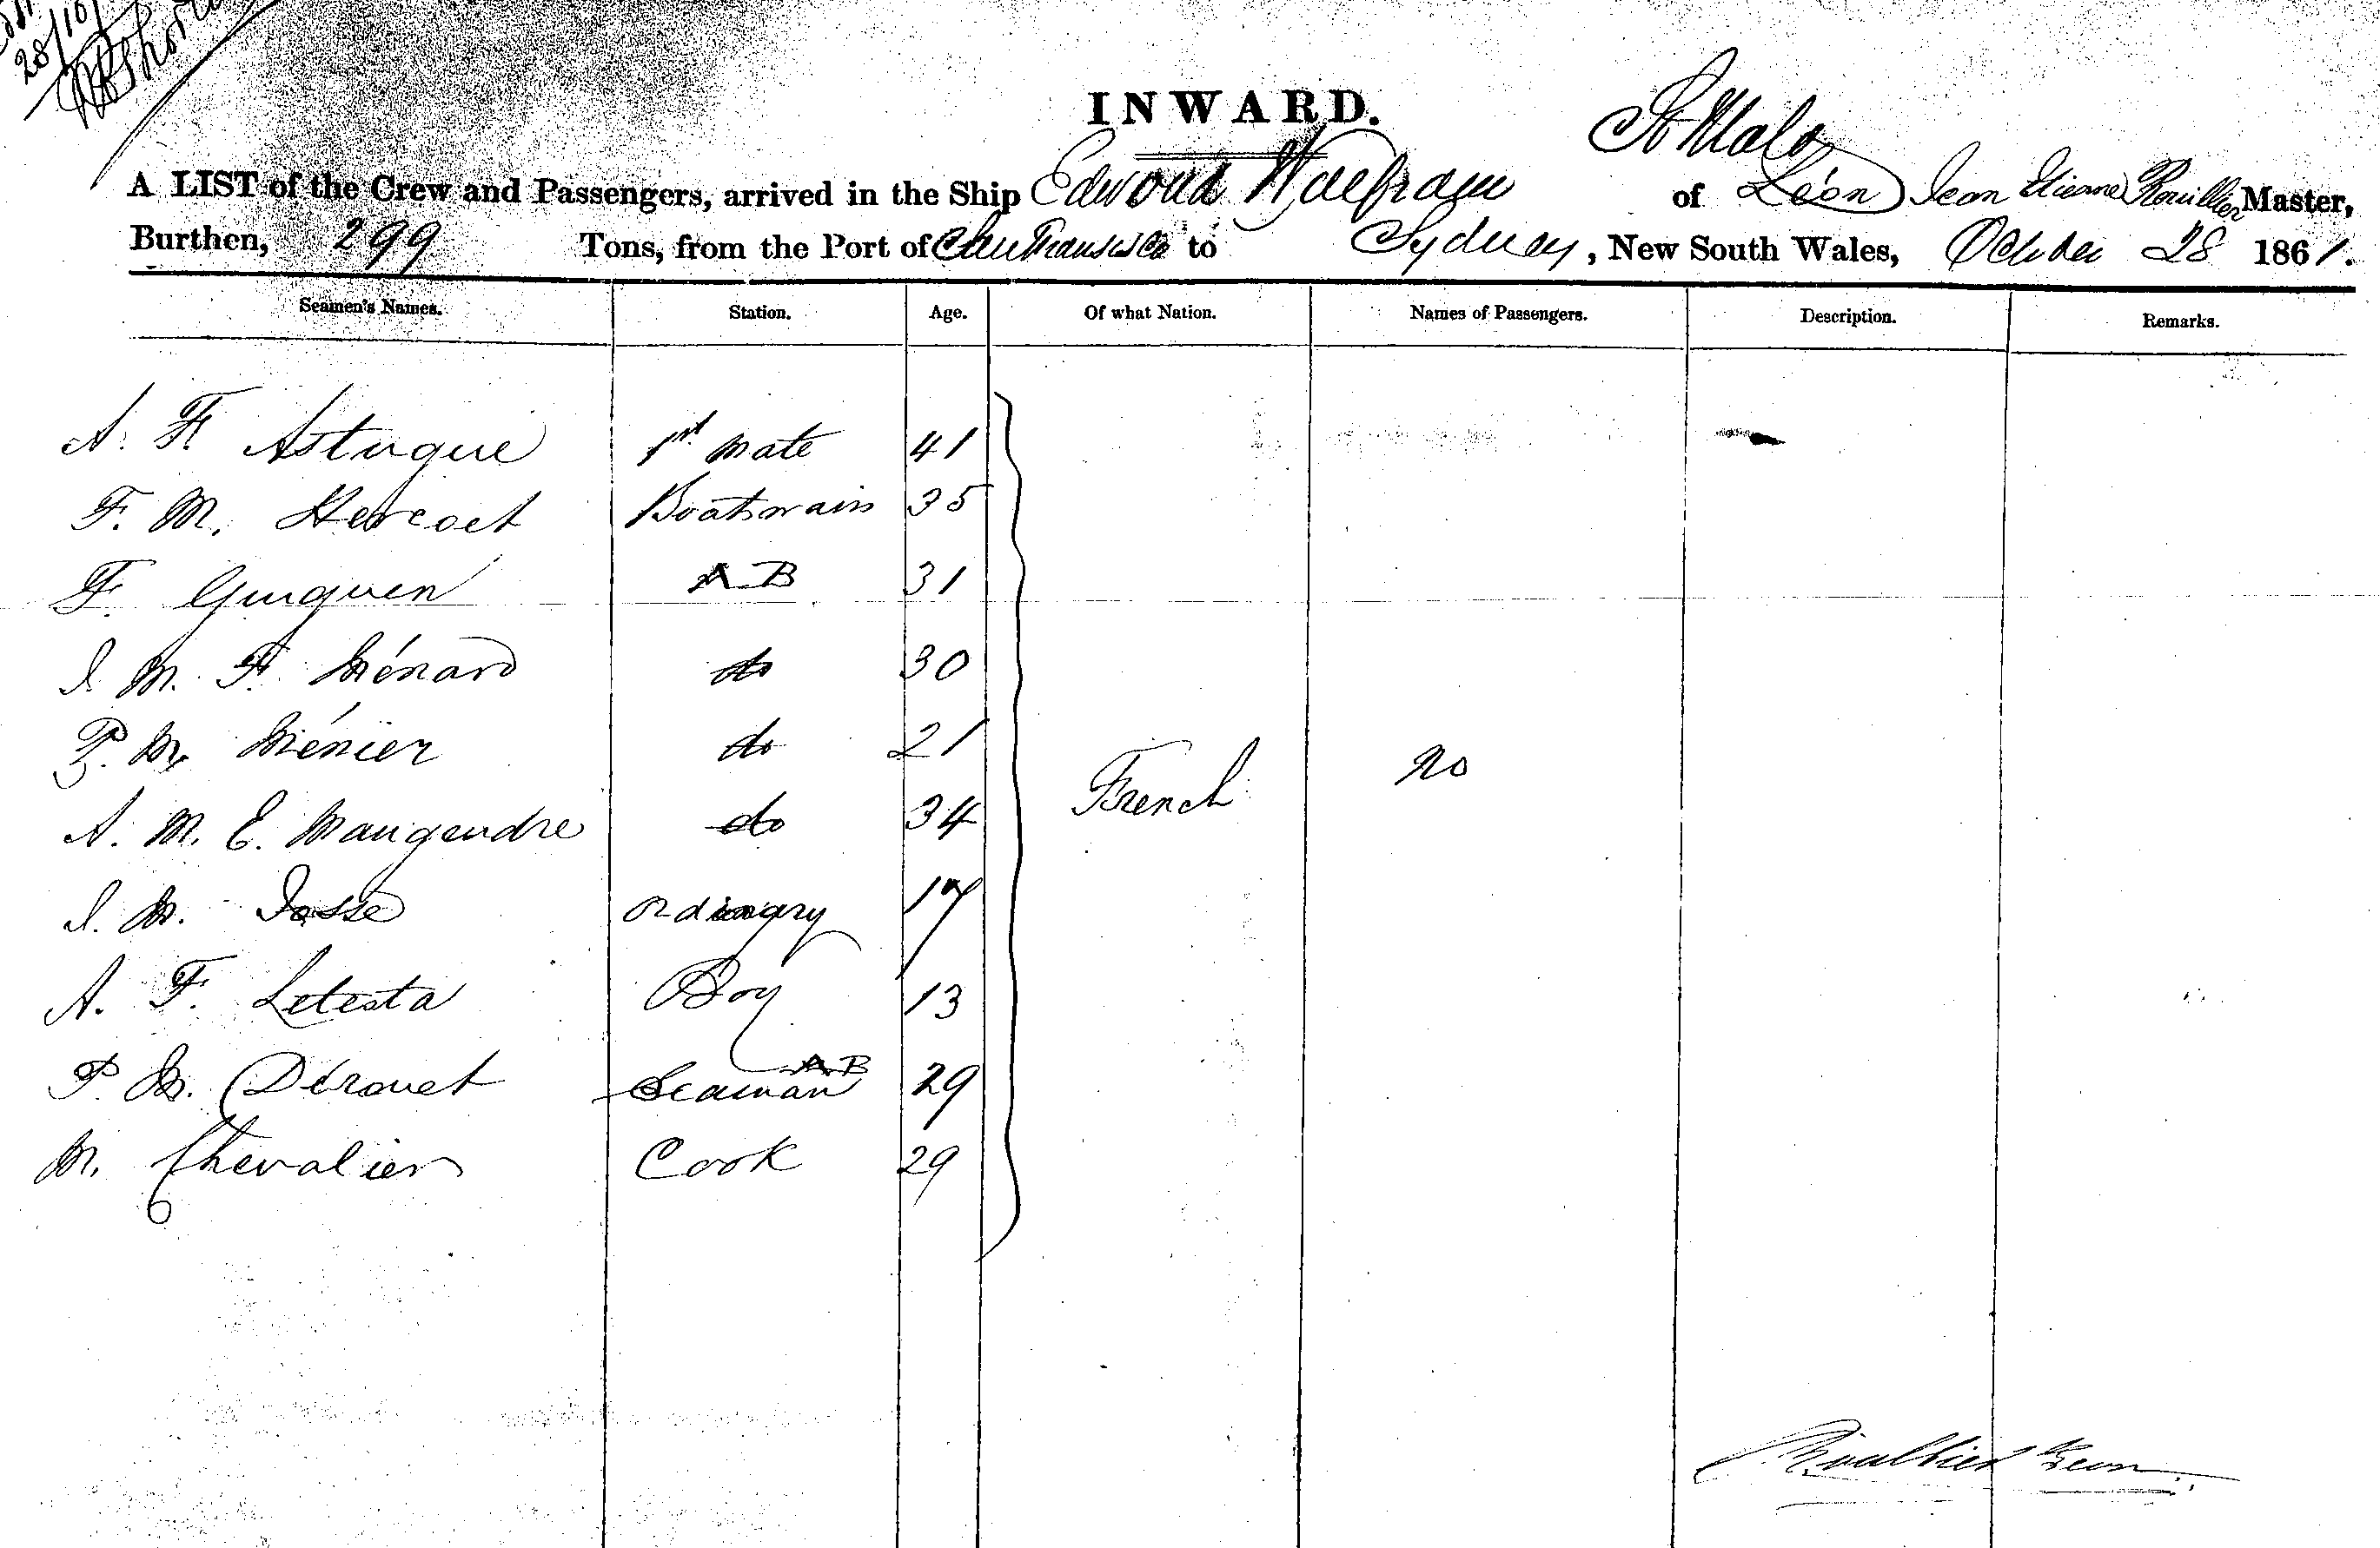 28/10/
INWARD.
St Malo
A LIST of the Crew and Passengers, arrived in the Ship Edward of Léon Jean Etienne Master,
Burthen, 299 Tons, from the Port of San Francisco to Sydney, New South Wales, October 28 1861.
Seamen's Names. Station. Age. Of what Nation. Names of Passengers. Description. Remarks.
A. F. Astugue 1st Mate 41
F. M. Hercoet Boatswain 35
F. Guiguen A B 31
J. M. F. Ménard do 30
P. M. Ménier do 21
A. M. E. Maugendre do 34
French no
J. M. Josse Ordinary 17
A. F. Letesta Boy 13
P. M. Dérouet Seaman AB 29
M. Chevalier Cook 29